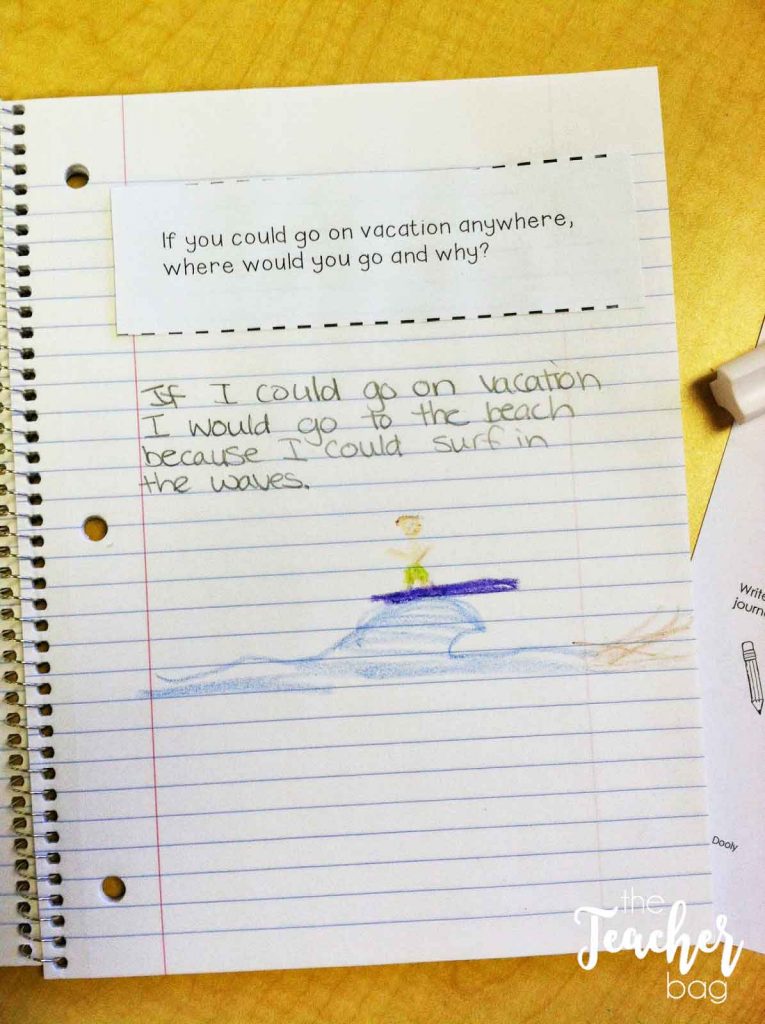 If you could go on vacation anywhere,
where would you go and why?
If I could go on vacation
I would go to the beach
because I could surf in
the waves.
Write
journ
Dooly
the
Teacher
bag